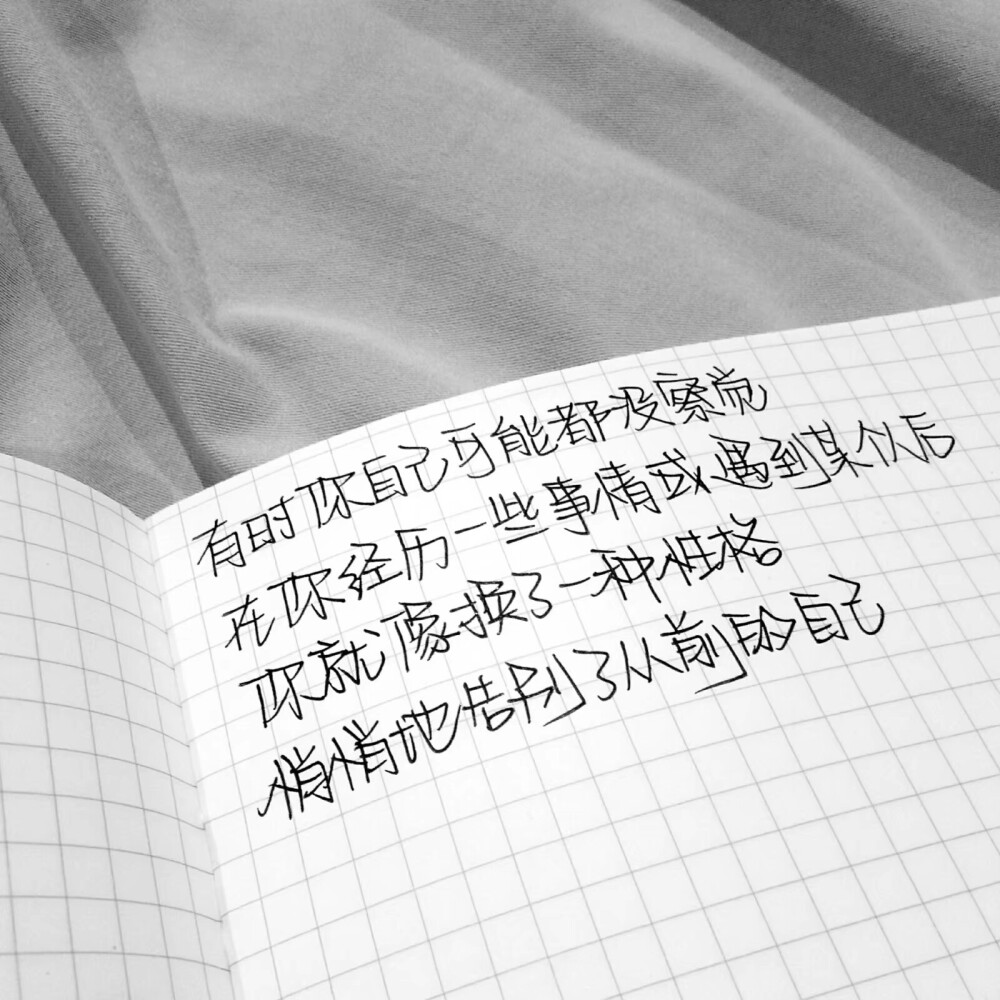 有时你自己可能都没察觉
在你经历一些事情或遇到某个人后
你就像换了一种性格
悄悄地告别了从前的自己